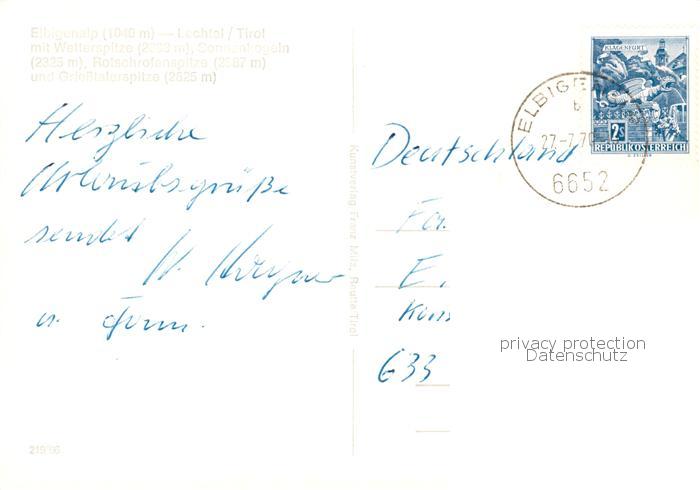 Elbigenalp (1040 m) — Lechtal / Tirol
mit Wetterspitze m), Sonnenkogeln
(2325 m), Rotschrofenspitze m)
und Grießtalerspitze (2625 m)
Herzliche
Urlaubsgrüße
sendet
u. Fam.
219/66
Kunstverlag Franz Milz, Reutte Tirol
KLAGENFURT
2S
REPUBLIK ÖSTERREICH
ELBIGE
b
27.-7.70
6652
Deutschland
Fa.
E.
633
privacy protection
Datenschutz